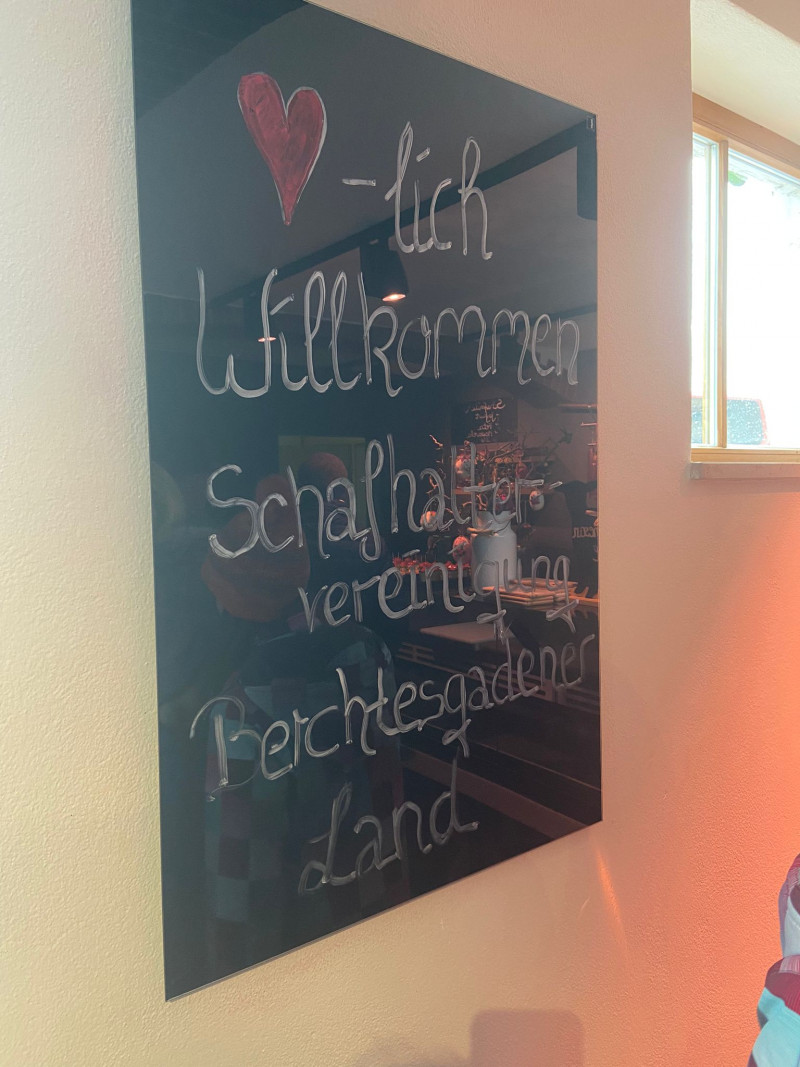 -lich
Willkommen
Schafhalter-
vereinigung
Berchtesgadener
Land